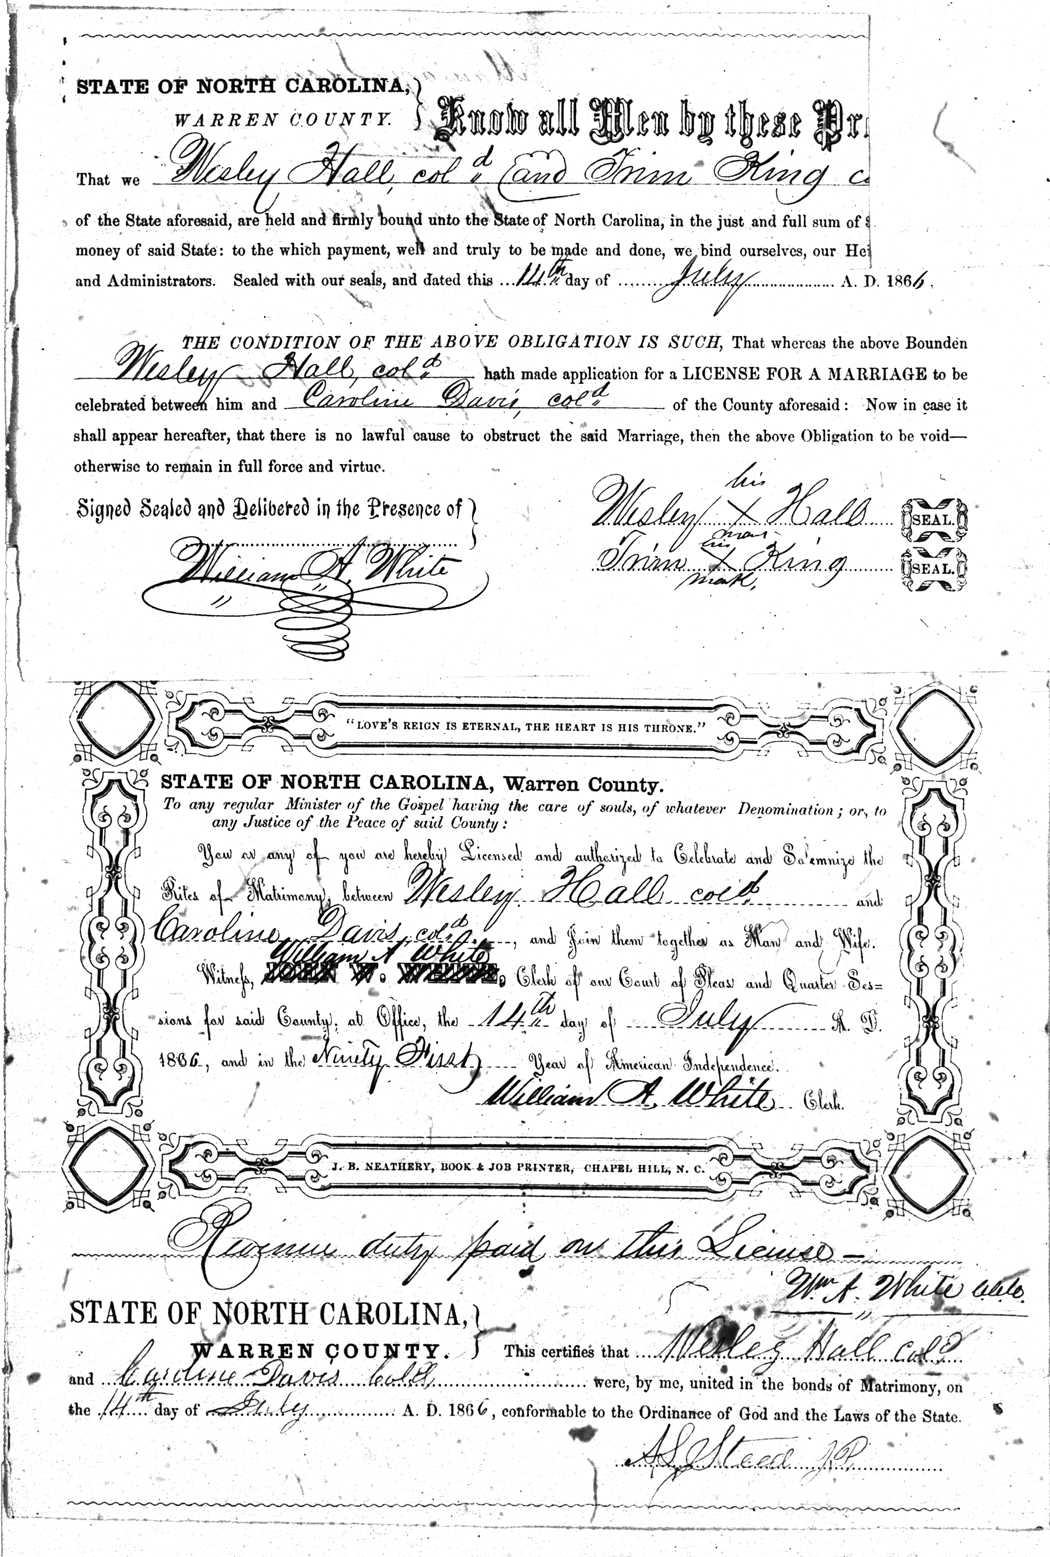 STATE OF NORTH CAROLINA,
WARREN COUNTY. Know all Men by these Pr
That we Wesley Hall, col'd (and Trim King c
of the State aforesaid, are held and firmly bound unto the State of North Carolina, in the just and full sum of
money of said State: to the which payment, well and truly to be made and done, we bind ourselves, our Hei
and Administrators. Sealed with our seals, and dated this 14th day of July A. D. 1866.
THE CONDITION OF THE ABOVE OBLIGATION IS SUCH, That whereas the above Bounden
Wesley Hall, col'd hath made application for a LICENSE FOR A MARRIAGE to be
celebrated between him and Caroline Davis, col'd of the County aforesaid: Now in case it
shall appear hereafter, that there is no lawful cause to obstruct the said Marriage, then the above Obligation to be void—
otherwise to remain in full force and virtue.
Signed Sealed and Delibered in the Presence of
William A. White
his
Wesley X Hall SEAL.
mark
his
Trim X King SEAL.
mark.
"LOVE'S REIGN IS ETERNAL, THE HEART IS HIS THRONE."
STATE OF NORTH CAROLINA, Warren County.
To any regular Minister of the Gospel having the care of souls, of whatever Denomination; or, to
any Justice of the Peace of said County:
You or any of you are hereby Licensed and authorized to Celebrate and Solemnize the
Rites of Matrimony, between Wesley Hall col'd and
Caroline Davis, col'd, and Join them together as Man and Wife.
William A White
Witness, JOHN W. WHITE, Clerk of our Court of Pleas and Quarter Ses=
sions for said County, at Office, the 14th day of July A. D.
1866, and in the Ninety First Year of American Independence.
William A. White Clerk.
J. B. NEATHERY, BOOK & JOB PRINTER, CHAPEL HILL, N. C.
Revenue duty paid on this License —
Wm A. White
STATE OF NORTH CAROLINA,
WARREN COUNTY. This certifies that Wesley Hall col'd
and Caroline Davis Col'd, were, by me, united in the bonds of Matrimony, on
the 14th day of July A. D. 1866, conformable to the Ordinance of God and the Laws of the State.
A S Steed J.P.